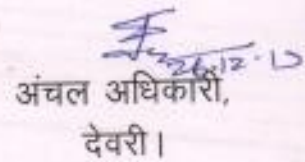 26.12.17
अंचल अधिकारी,
देवरी।